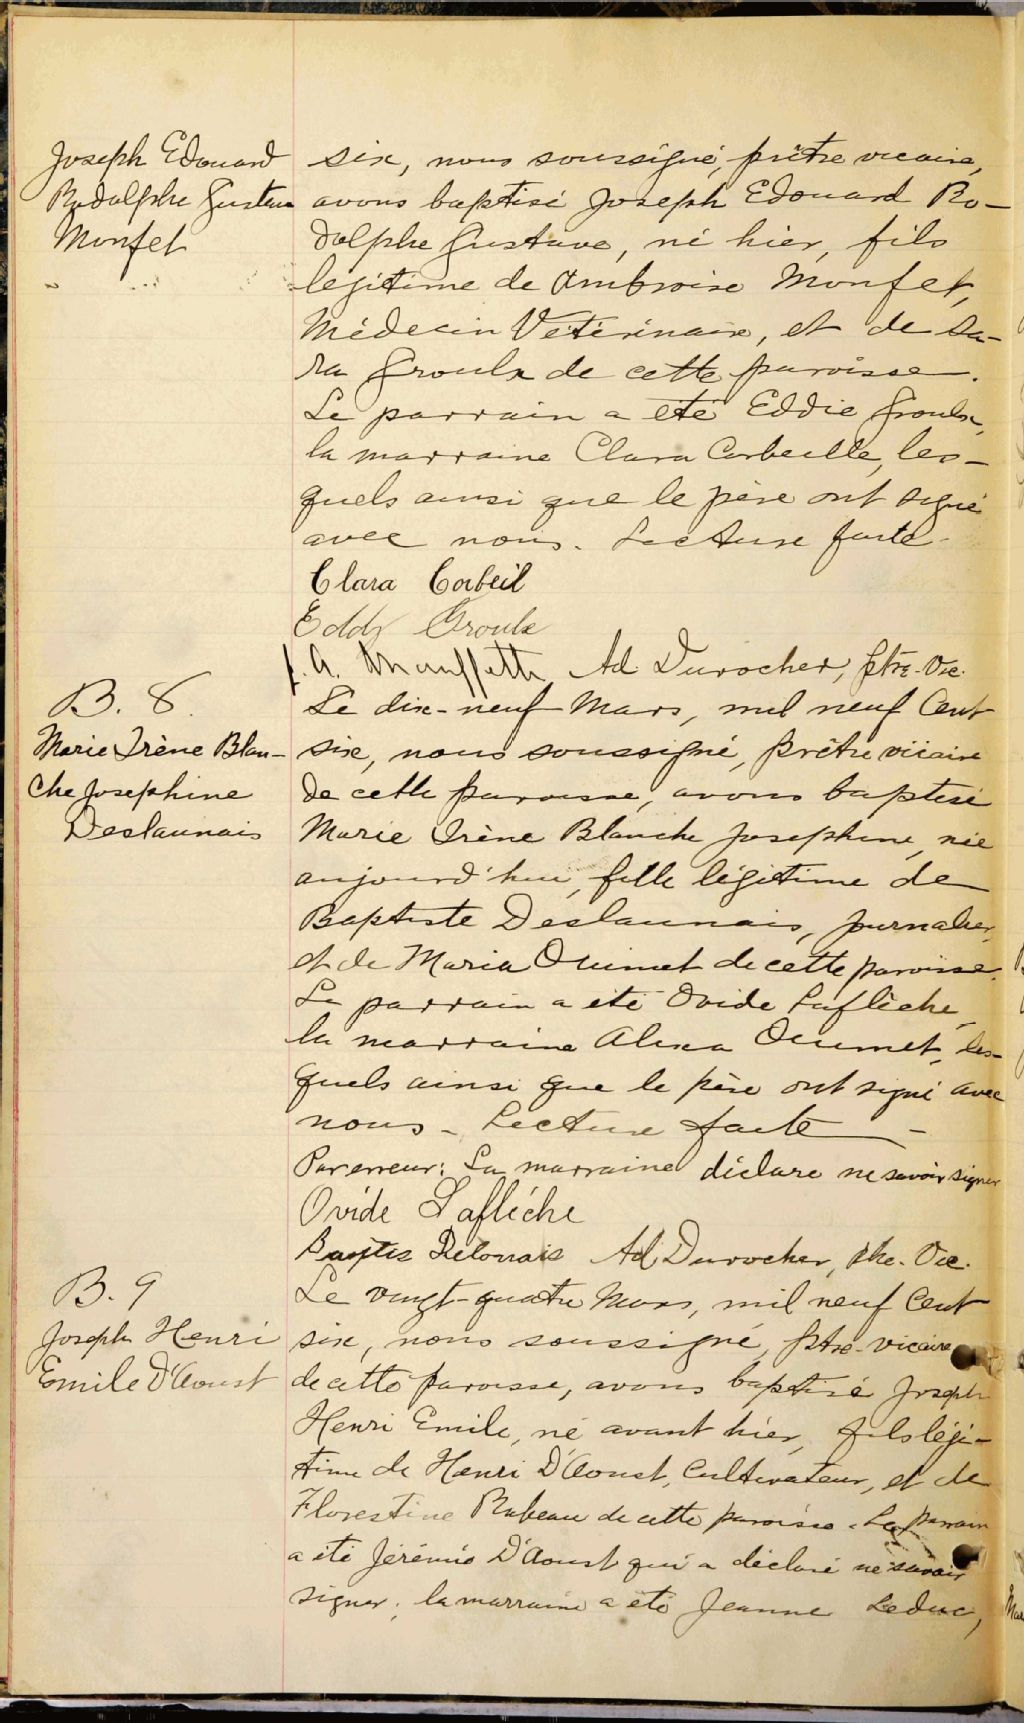 Joseph Edouard
Rodolphe Gustave
Monfet
six, nous soussigné, prêtre vicaire,
avons baptisé Joseph Edouard Ro-
dolphe Gustave, né hier, fils
legitime de Ambroise Monfet,
Médecin Vétérinaire, et de Sa-
ra Groulx de cette paroisse.
Le parrain a été Eddie Groulx,
la marraine Clara Corbeille, les-
quels ainsi que le père ont signé
avec nous. Lecture faite.
Clara Corbeil
Eddy Groulx
J. A. Mauffette, Ad Durocher, ptre. Vic.
B. 8
Marie Irène Blan-
che Josephine
Deslaunais
Le dix-neuf Mars, mil neuf Cent
six, nous soussigné, prêtre vicaire
de cette paroisse, avons baptisé
Marie Irène Blanche Josephine, née
aujourd'hui, fille légitime de
Baptiste Deslaunais, Journalier,
et de Maria Ouimet de cette paroisse.
Le parrain a été Ovide Laflèche,
la marraine Alexa Ouimet, les-
quels ainsi que le père ont signé avec
nous - Lecture faite -
Par erreur: La marraine déclare ne savoir signer
Ovide Lafléche
Baptis Delonais Ad Durocher, ptre. Vic.
B. 9
Joseph Henri
Emile D'Aoust
Le vingt-quatre Mars, mil neuf Cent
six, nous soussigné, ptre-vicaire
de cette paroisse, avons baptisé Joseph
Henri Emile, né avant hier, fils légi-
time de Henri D'Aoust, Cultivateur, et de
Florestine Rubeau de cette paroisse. Le parrain
a été Jérémie D'Aoust qui a déclaré ne savoir
signer, la marraine a été Jeanne Leduc,